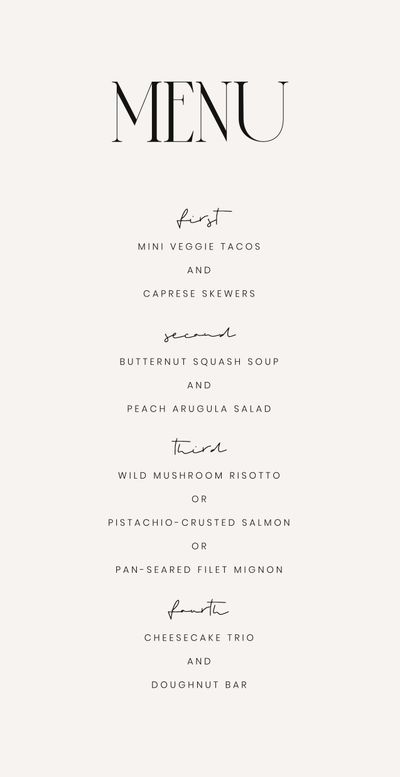 MENU
first
MINI VEGGIE TACOS
AND
CAPRESE SKEWERS
second
BUTTERNUT SQUASH SOUP
AND
PEACH ARUGULA SALAD
third
WILD MUSHROOM RISOTTO
OR
PISTACHIO-CRUSTED SALMON
OR
PAN-SEARED FILET MIGNON
fourth
CHEESECAKE TRIO
AND
DOUGHNUT BAR